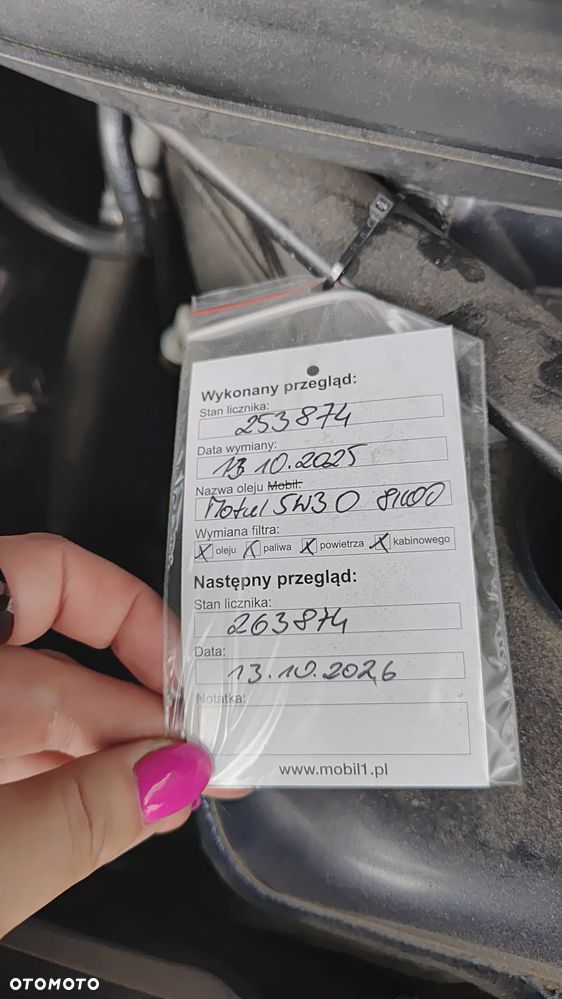 Wykonany przegląd:
Stan licznika:
253874
Data wymiany:
13.10.2025
Nazwa oleju Mobil:
Motul 5W30 8100
Wymiana filtra:
X oleju X paliwa X powietrza X kabinowego
Następny przegląd:
Stan licznika:
263874
Data:
13.10.2026
Notatka:
www.mobil1.pl
OTOMOTO